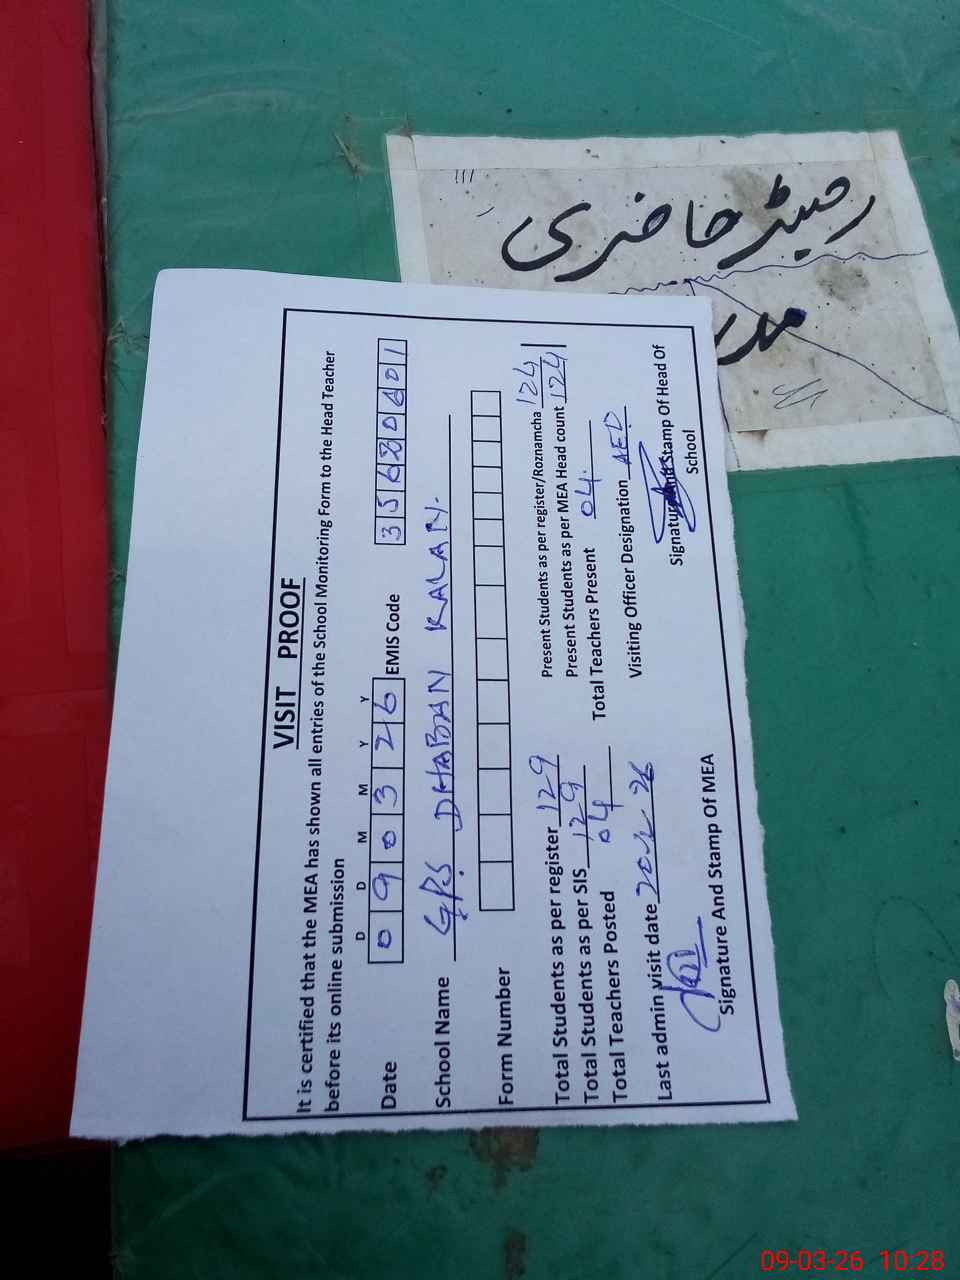 رجسٹر حاضری
مدر
VISIT PROOF
It is certified that the MEA has shown all entries of the School Monitoring Form to the Head Teacher
before its online submission
D D M M Y Y
Date 0 9 0 3 2 6 EMIS Code 3 5 6 8 0 6 0 1
School Name GPS DHABAN KALAN.
Form Number
Total Students as per register 129 Present Students as per register/Roznamcha 124
Total Students as per SIS 129 Present Students as per MEA Head count 124
Total Teachers Posted 04 Total Teachers Present 04.
Last admin visit date 20.2.26 Visiting Officer Designation AED
Signature And Stamp Of MEA Signature And Stamp Of Head Of
School
09-03-26 10:28